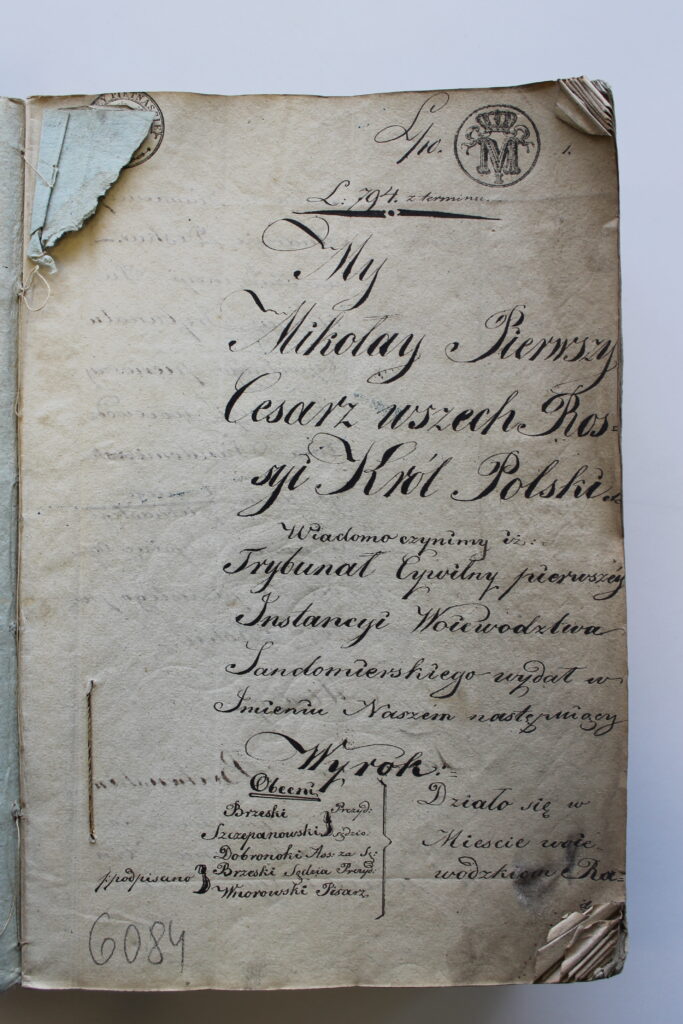 M
1.
L: 794. z terminu.
My
Mikołay Pierwszy
Cesarz wszech Ros=
syi Król Polski.
Wiadomo czynimy iż:
Trybunał Cywilny pierwszéy
Instancyi Woiewodztwa
Sandomierskiego wydał w
Imieniu Naszém następuiący
Wyrok:=
Obecni
Brzeski Prezyd:
Szczepanowski Sędzio.
Dobronoki Ass: za Sę:
ppodpisano Brzeski Sędzia Prezyd:
Wnorowski Pisarz
Działo się w
Mieście woie=
wodzkiem Ra=
6084